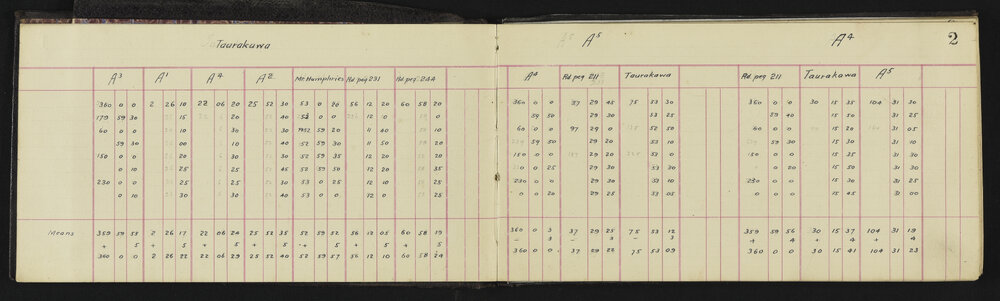 Taurakawa
A³ A¹ A⁴ A² Mr. Humphries Rd peg 231 Rd peg 244
360 0 0 2 26 10 22 06 20 25 52 30 53 0 20 56 12 20 60 58 20
179 59 30 15 20 40 0 12 0 0
60 0 0 10 30 30 52 59 20 11 40 10
59 30 00 10 40 52 59 30 11 50 20
150 0 0 20 30 30 52 59 35 12 20 20
0 10 25 25 45 52 59 50 12 20 35
230 0 0 25 25 30 53 0 25 12 10 25
0 10 30 30 40 53 0 0 12 0 25
Means 359 59 55 2 26 17 22 06 24 25 52 35 52 59 52 56 12 05 60 58 19
+ 5 + 5 + 5 + 5 + 5 + 5 + 5
360 0 0 2 26 22 22 06 29 25 52 40 52 59 57 56 12 10 60 58 24
A⁵
A⁴ Rd. peg 211 Taurakawa
360 0 0 37 29 45 75 53 30
59 50 29 30 53 25
60 0 0 97 29 0 52 50
59 50 29 20 53 10
150 0 0 29 20 53 0
0 25 29 30 53 30
230 0 0 29 25 53 10
0 20 29 25 53 05
360 0 3 37 29 25 75 53 12
- 3 - 3 - 3
360 0 0 37 29 22 75 53 09
A⁴ 2
Rd. peg 211 Taurakawa A⁵
360 0 0 30 15 35 104 31 30
59 40 15 40 31 25
60 0 0 15 20 31 05
59 30 15 30 31 10
150 0 0 15 25 31 30
0 20 15 50 31 30
230 0 0 15 30 31 25
0 0 15 45 31 00
359 59 56 30 15 37 104 31 19
+ 4 + 4 + 4
360 0 0 30 15 41 104 31 23